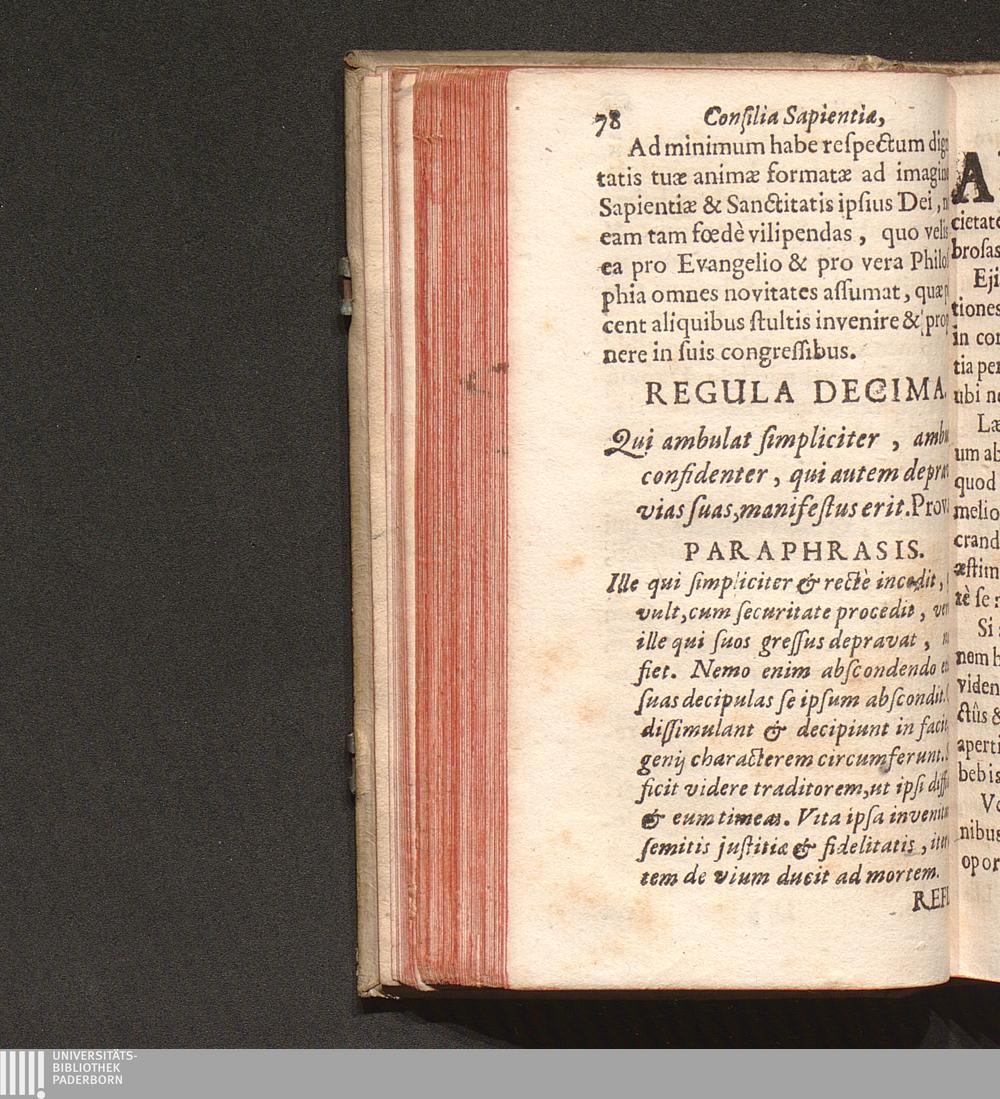 78 Conſilia Sapientiæ,
Ad minimum habe reſpectum dig
tatis tuæ animæ formatæ ad imagin
Sapientiæ & Sanctitatis ipſius Dei,
eam tam fœdè vilipendas, quo velis
ea pro Evangelio & pro vera Philoſ
phia omnes novitates aſſumat, quæ
cent aliquibus ſtultis invenire & prop
nere in ſuis congreſſibus.
REGULA DECIMA.
Qui ambulat ſimpliciter, ambu
confidenter, qui autem deprav
vias ſuas, manifeſtus erit. Prov.
PARAPHRASIS.
Ille qui ſimpliciter & rectè incedit,
vult, cum ſecuritate procedit, ver
ille qui ſuos greſſus depravat,
fiet. Nemo enim abſcondendo
ſuas decipulas ſe ipſum abſcondit.
diſſimulant & decipiunt in facie
genij characterem circumferunt.
ficit videre traditorem, ut ipſi diffi
& eum timeas. Vita ipſa invenitur
ſemitis juſtitiæ & fidelitatis, iter
tem de vium ducit ad mortem.
REFL
A
cietate
broſas
Eji
tiones
in con
tia per
ubi ne
Læ
um ab
quod
melio
crand
æſtim
tè ſe
Si
nem h
viden
ctûs &
aperti
bebis
Ve
nibus
opor
UNIVERSITÄTS-
BIBLIOTHEK
PADERBORN